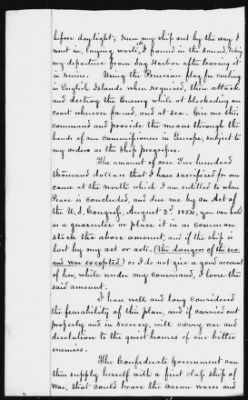 before daylight, run my ship out by the way I
went in, laying waste all I found in the Sound, taking
my departure from Sag Harbor after leaving it
in ruins. Using the Peruvian flag for coaling
in English Islands when required, then attack
and destroy the Enemy while at blockading our
coast wherever found, and at sea. Give me this
command and provide the means through the
hands of our Commissioner in Europe, subject to
my orders as the ship progresses.
The amount of over Two hundred
thousand dollars that I have sacrificed for our
cause at the North which I am entitled to when
Peace is concluded, and due me by an Act of
the U.S. Congress, August 3d. 1854, you can hold
as a guarantee or place it in as common
stock the above amount, and if the ship is
lost by my act or acts. (the dangers of the sea
and war excepted) or I do not give a good account
of her, while under my command, I lose the
said amount.
I have well and long considered
the feasability of this plan, and if carried out
properly and in secrecy, will convey war and
desolation to the quiet homes of our bitter
enemies.
The Confederate Government can
thus supply herself with a first class ship of
War, that could brave the ocean waves and